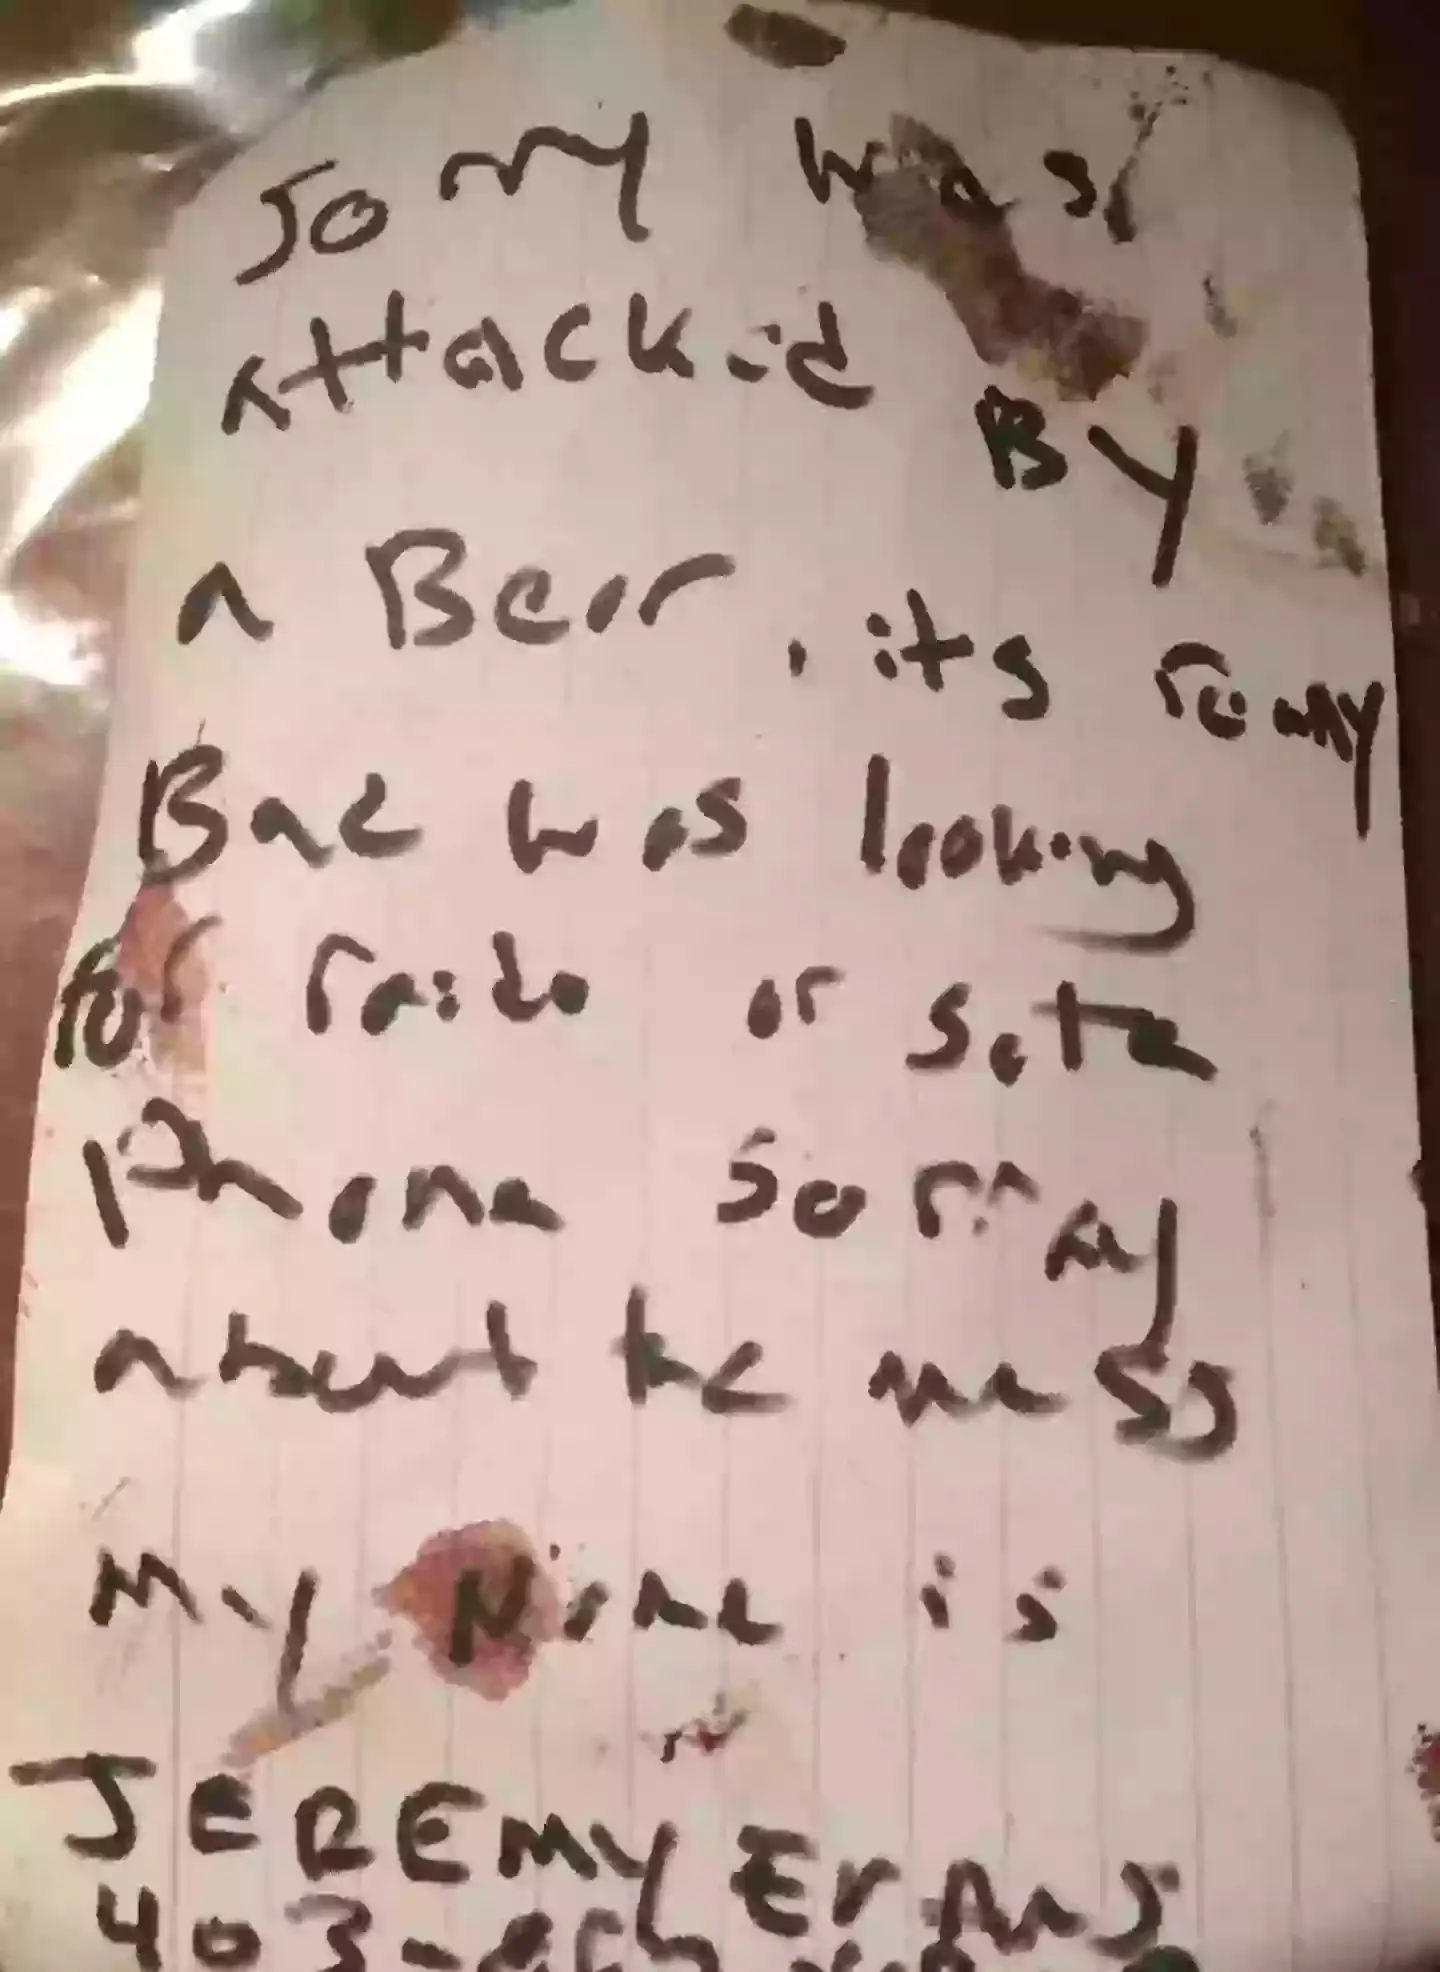 Sorry was
attacked By
a Bear, its realy
Bad was looking
for raido or sata
Phone Sorry
about the mess
My Name is
JEREMY EVANS
403-